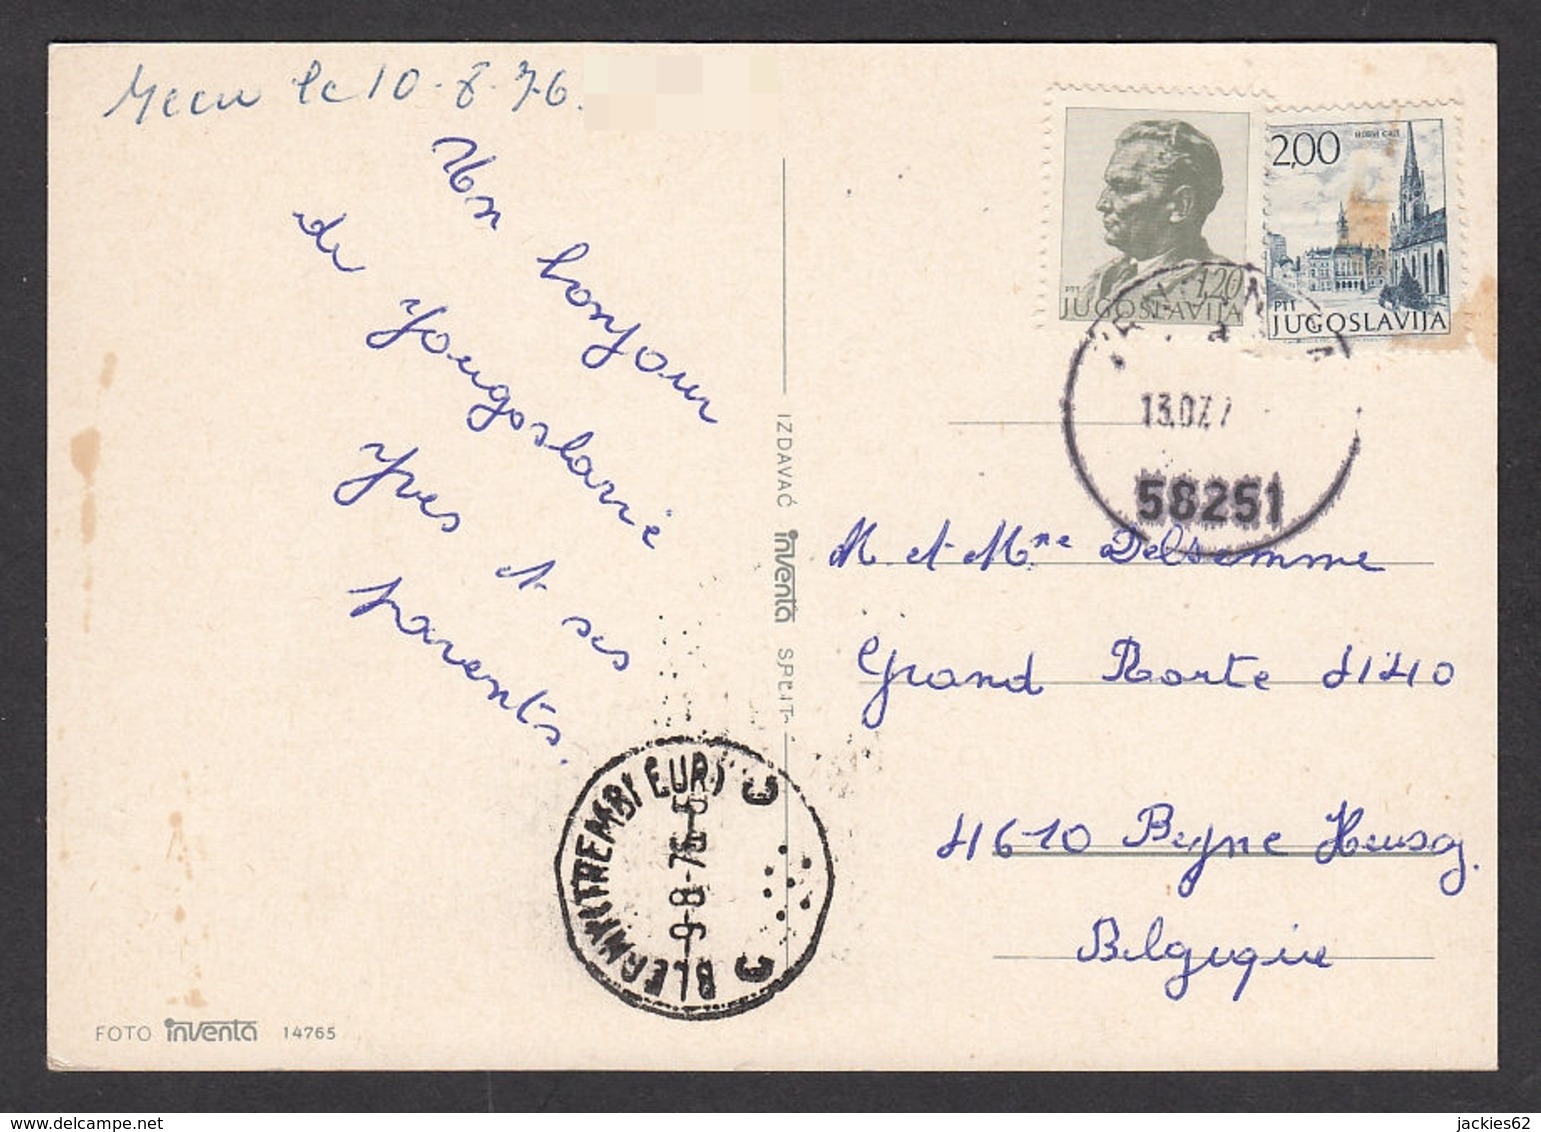 Recu le 10-8-76.
Un bonjour
de Yougoslavie
Yves et ses
parents.
1,20
PTT
JUGOSLAVIJA
2,00
НОВИ САД
PTT
JUGOSLAVIJA
13.07.7
58251
IZDAVAČ inventa SPLIT
M. et Mme Delsemme
Grand Route 4140
4610 Beyne Heusay.
Belgique
BLEGNY (TREMBLEUR)
9-8-76
C C
FOTO inventa 14765
jackies62